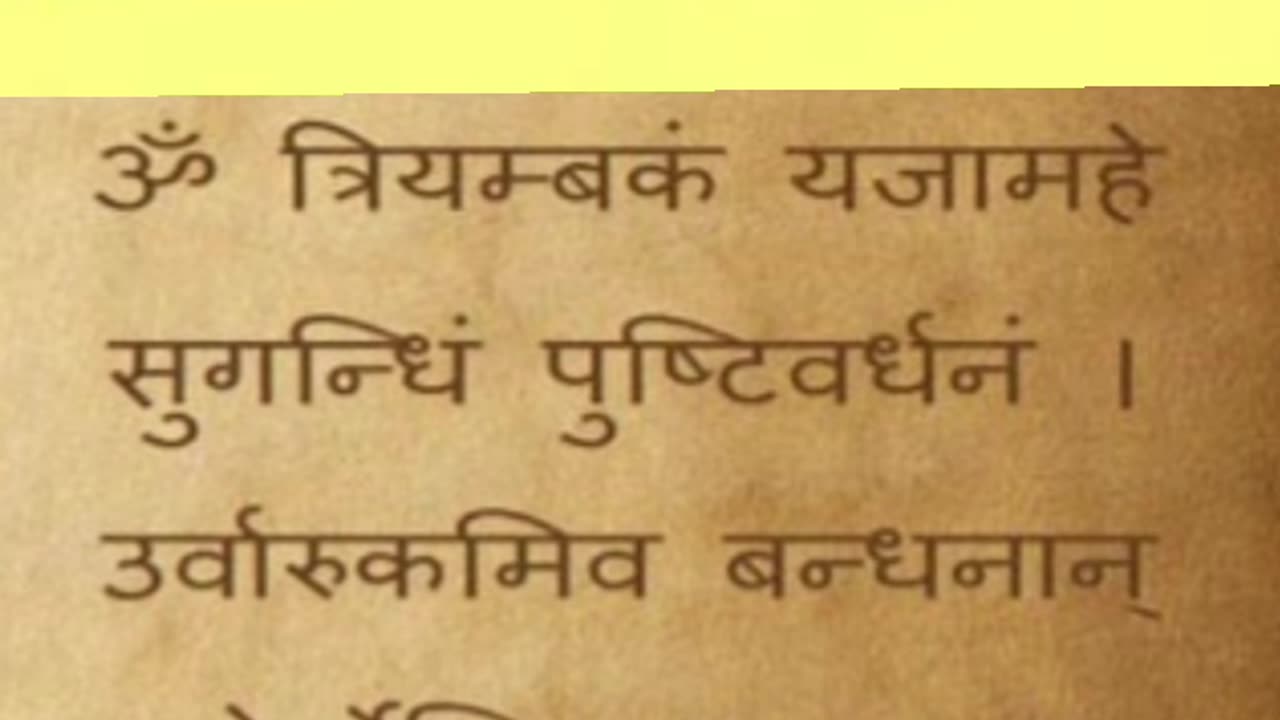 ॐ त्रियम्बकं यजामहे
सुगन्धिं पुष्टिवर्धनं ।
उर्वारुकमिव बन्धनान्